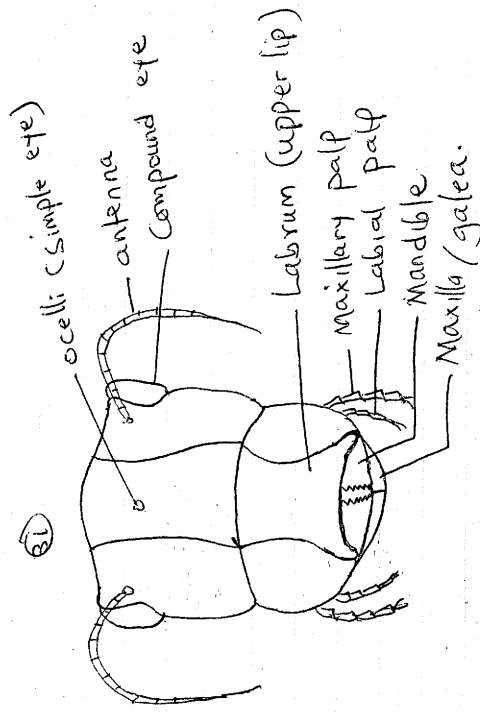 Bi
ocelli (simple eye)
antenna
compound eye
Labrum (upper lip)
Maxillary palp
Labial palp
Mandible
Maxilla (galea.